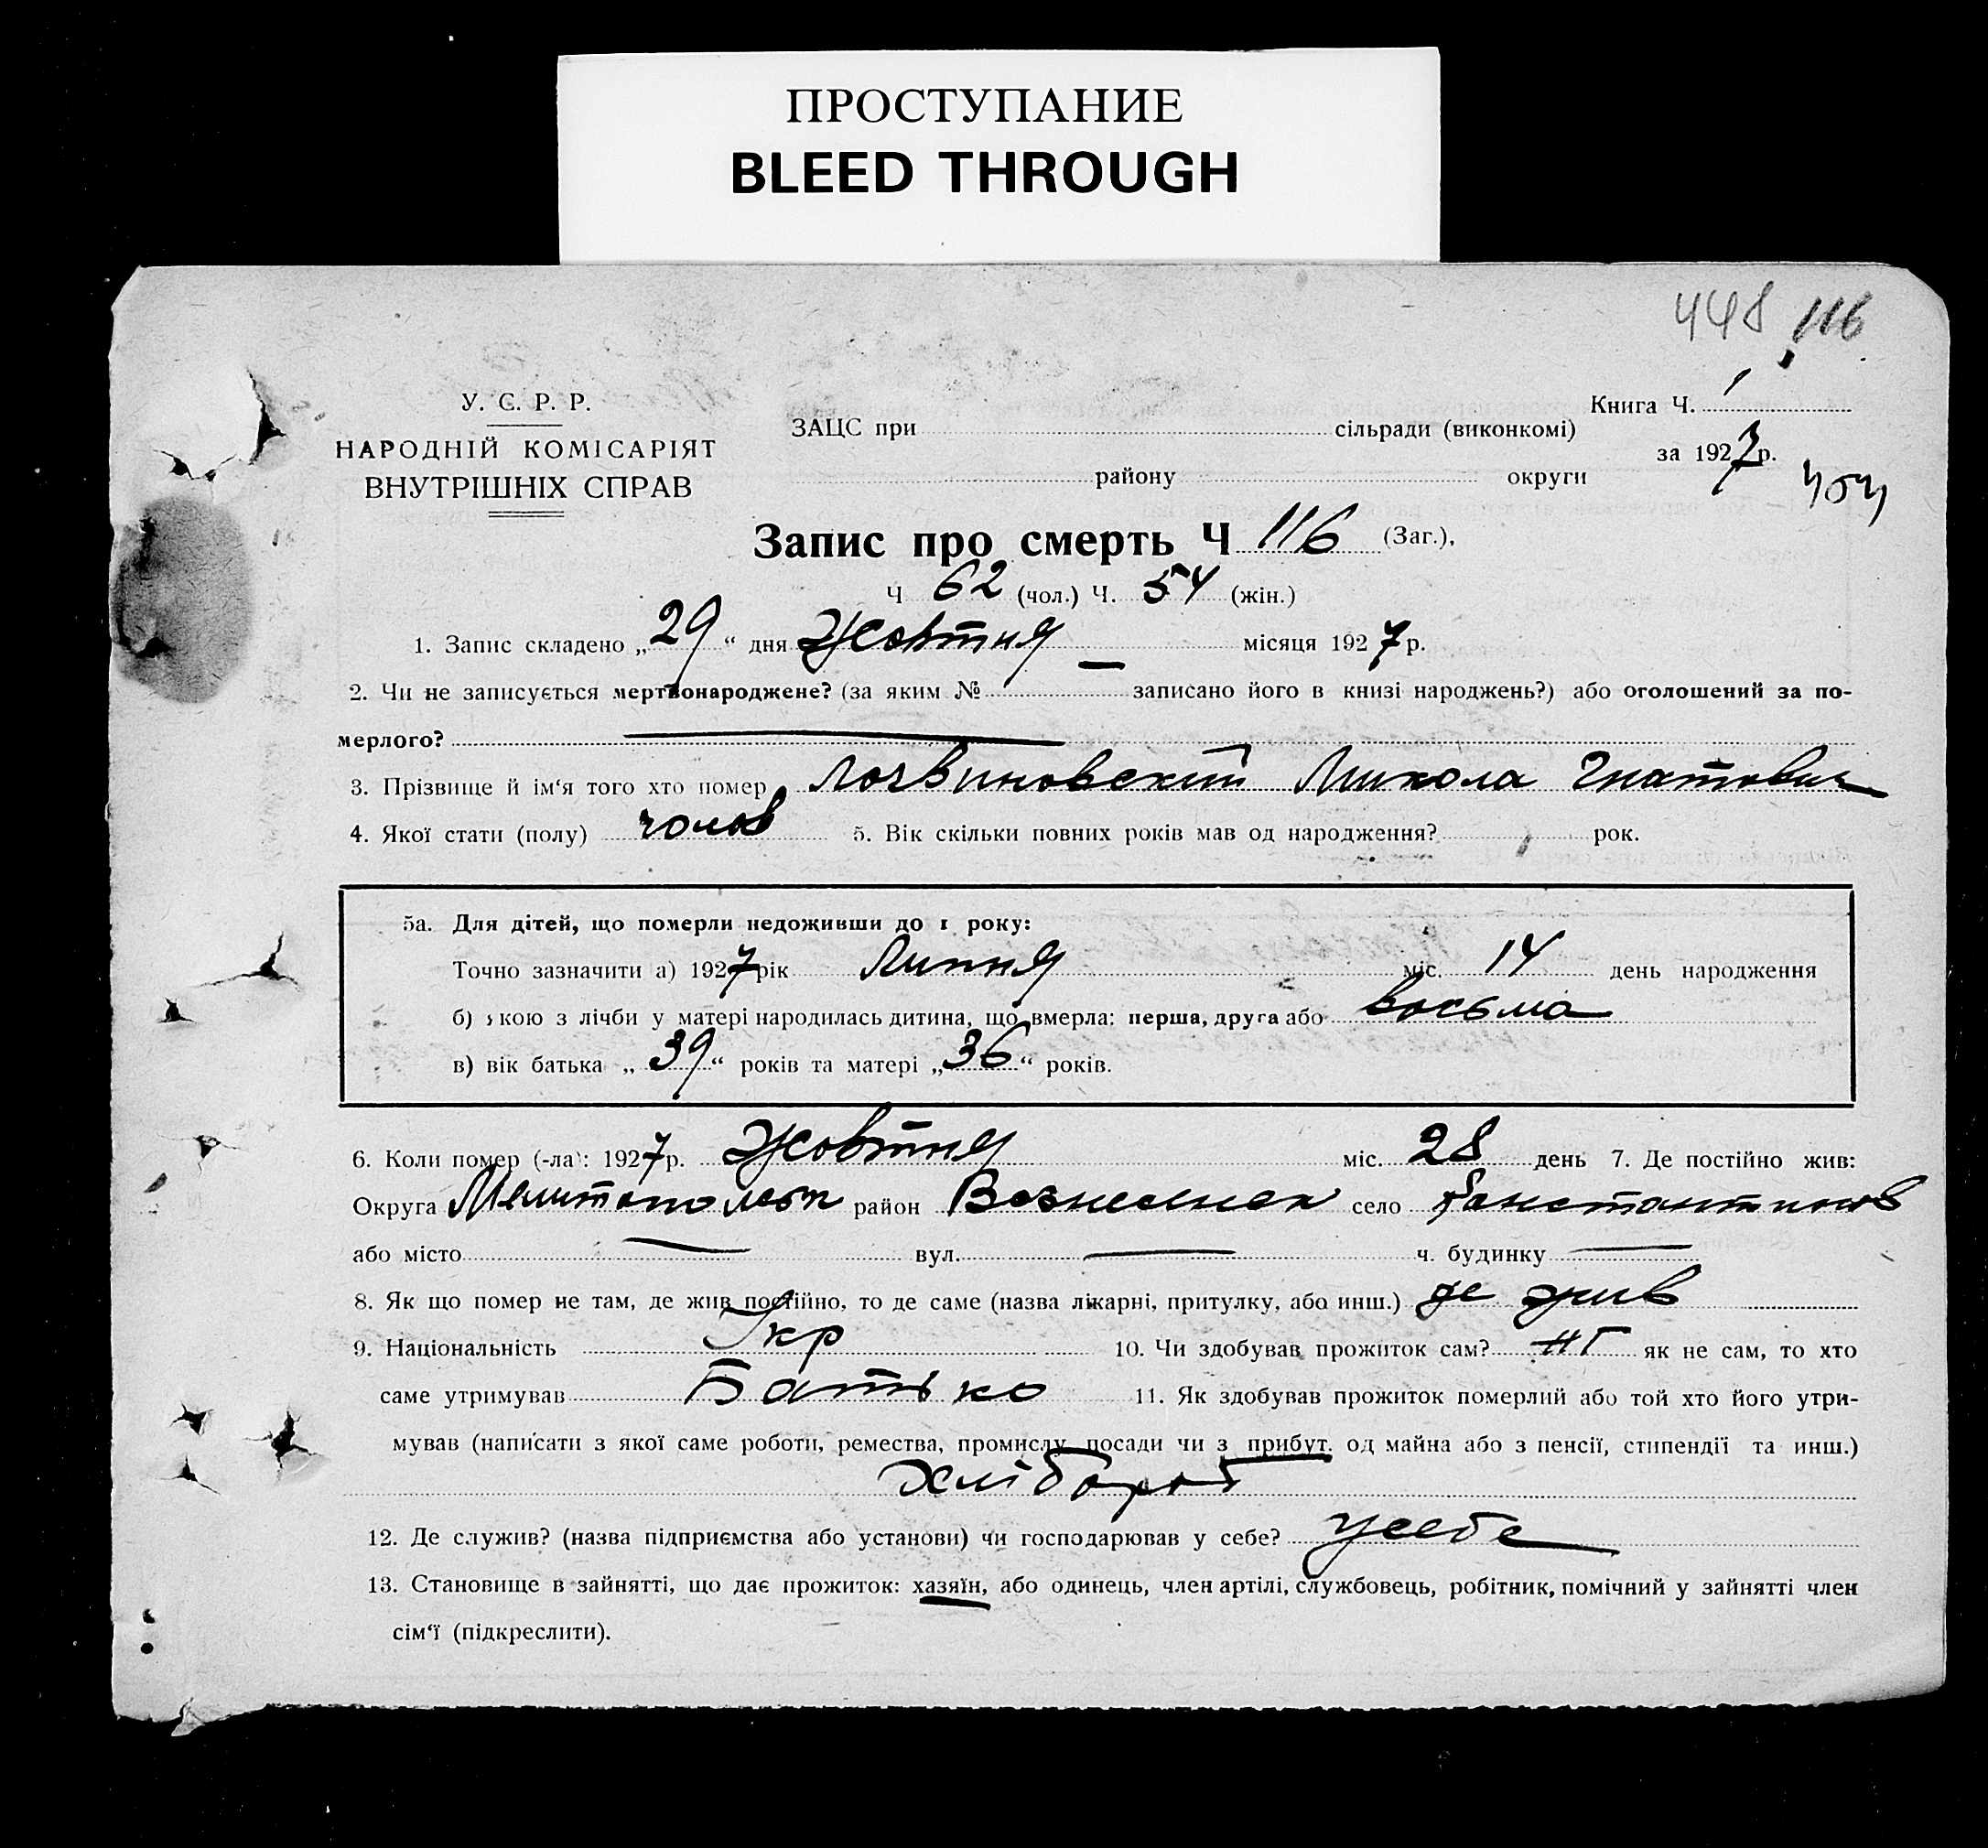 ПРОСТУПАНИЕ
BLEED THROUGH
448 116
У. С. Р. Р.
НАРОДНІЙ КОМІСАРІЯТ
ВНУТРІШНІХ СПРАВ
ЗАЦС при сільради (виконкомі)
району округи
Книга Ч. 1
за 1927 р.
Запис про смерть Ч 116 (Заг.),
Ч 62 (чол.) Ч. 54 (жін.)
1. Запис складено „29“ дня Жовтня місяця 1927 р.
2. Чи не записується мертвонароджене? (за яким № записано його в книзі народжень?) або оголошений за по-
мерлого?
3. Прізвище й ім‘я того хто помер Логвиновский Микола Гнатович
4. Якої стати (полу) чолов 5. Вік скільки повних років мав од народження? рок.
5а. Для дітей, що померли недоживши до 1 року:
Точно зазначити а) 1927 рік Липня міс. 14 день народження
б) якою з лічби у матері народилась дитина, що вмерла: перша, друга або восьма
в) вік батька „39“ років та матері „36“ років.
6. Коли помер (-ла): 1927 р. Жовтня міс. 28 день 7. Де постійно жив:
Округа Мелитопольск район Вознесенск село Констянтинов
або місто вул. ч. будинку
8. Як що помер не там, де жив постійно, то де саме (назва лікарні, притулку, або инш.) де жив
9. Національність Укр 10. Чи здобував прожиток сам? ні як не сам, то хто
саме утримував Батько 11. Як здобував прожиток померлий або той хто його утри-
мував (написати з якої саме роботи, ремества, промислу, посади чи з прибут. од майна або з пенсії, стипендії та инш.)
Хлібороб
12. Де служив? (назва підприємства або установи) чи господарював у себе? у себе
13. Становище в зайнятті, що дає прожиток: хазяїн, або одинець, член артілі, службовець, робітник, помічний у зайнятті член
сім‘ї (підкреслити).